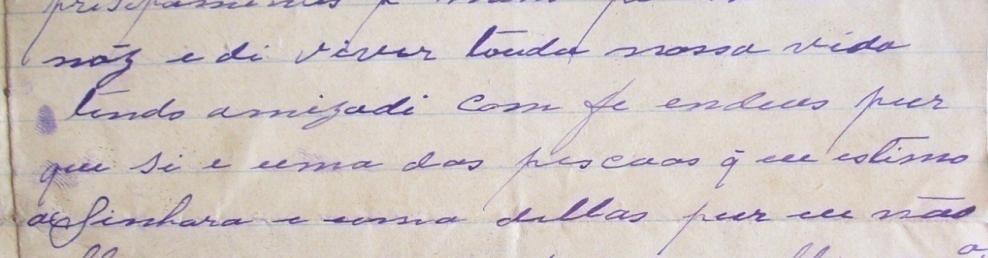 nóz e di viver touda nossa vida
tendo amizadi com fe endeus pur
que si e uma das pescoas q̃ eu estimo
a Sinhara e uma dellas pur eu não